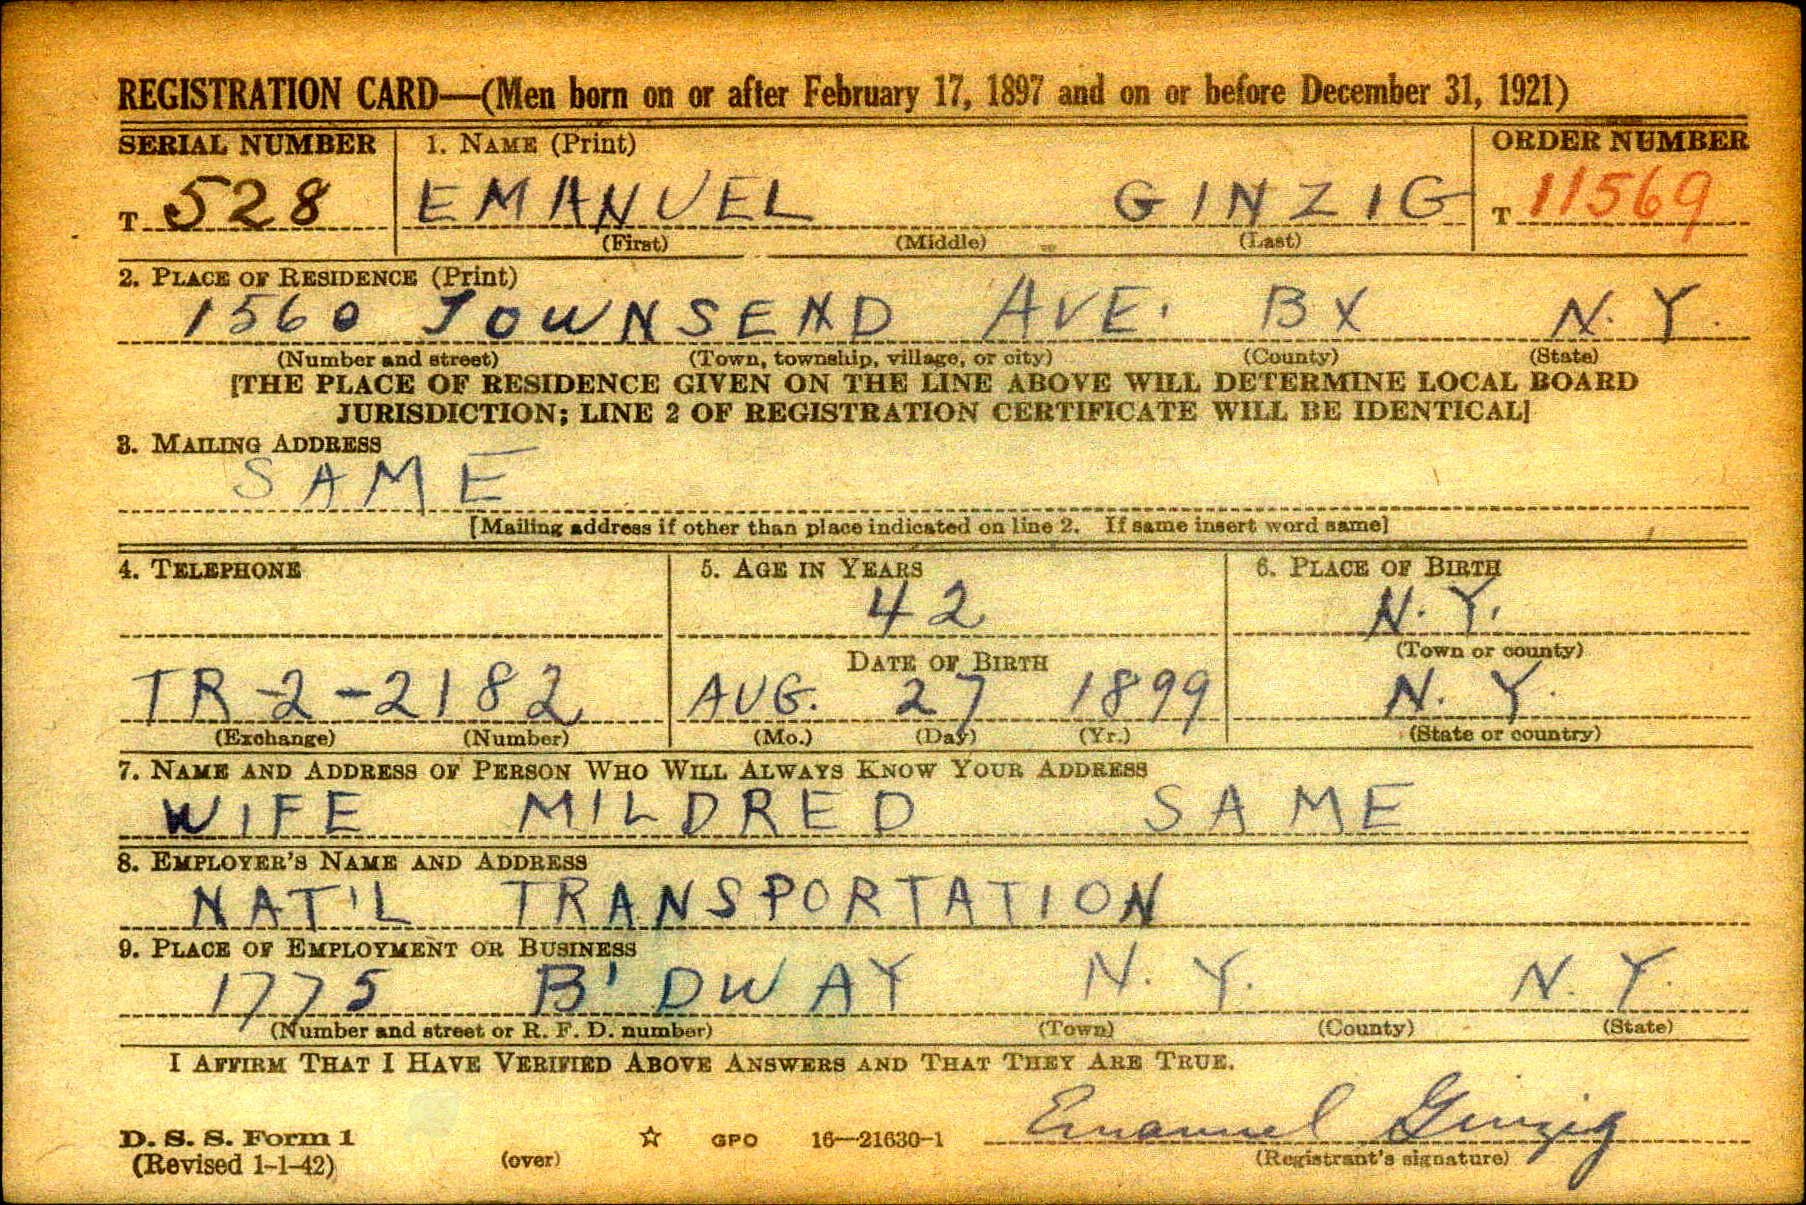 REGISTRATION CARD—(Men born on or after February 17, 1897 and on or before December 31, 1921)
SERIAL NUMBER 1. NAME (Print) ORDER NUMBER
T 528 EMANUEL GINZIG T 11569
(First) (Middle) (Last)
2. PLACE OF RESIDENCE (Print)
1560 TOWNSEND AVE. BX N.Y.
(Number and street) (Town, township, village, or city) (County) (State)
[THE PLACE OF RESIDENCE GIVEN ON THE LINE ABOVE WILL DETERMINE LOCAL BOARD
JURISDICTION; LINE 2 OF REGISTRATION CERTIFICATE WILL BE IDENTICAL]
3. MAILING ADDRESS
SAME
[Mailing address if other than place indicated on line 2. If same insert word same]
4. TELEPHONE 5. AGE IN YEARS 6. PLACE OF BIRTH
42 N.Y.
DATE OF BIRTH (Town or county)
TR-2-2182 AUG. 27 1899 N.Y.
(Exchange) (Number) (Mo.) (Day) (Yr.) (State or country)
7. NAME AND ADDRESS OF PERSON WHO WILL ALWAYS KNOW YOUR ADDRESS
WIFE MILDRED SAME
8. EMPLOYER'S NAME AND ADDRESS
NAT'L TRANSPORTATION
9. PLACE OF EMPLOYMENT OR BUSINESS
1775 B'DWAY N.Y. N.Y.
(Number and street or R. F. D. number) (Town) (County) (State)
I AFFIRM THAT I HAVE VERIFIED ABOVE ANSWERS AND THAT THEY ARE TRUE.
Emanuel Ginzig
D. S. S. Form 1 ☆ GPO 16—21630-1
(Revised 1-1-42) (over) (Registrant's signature)